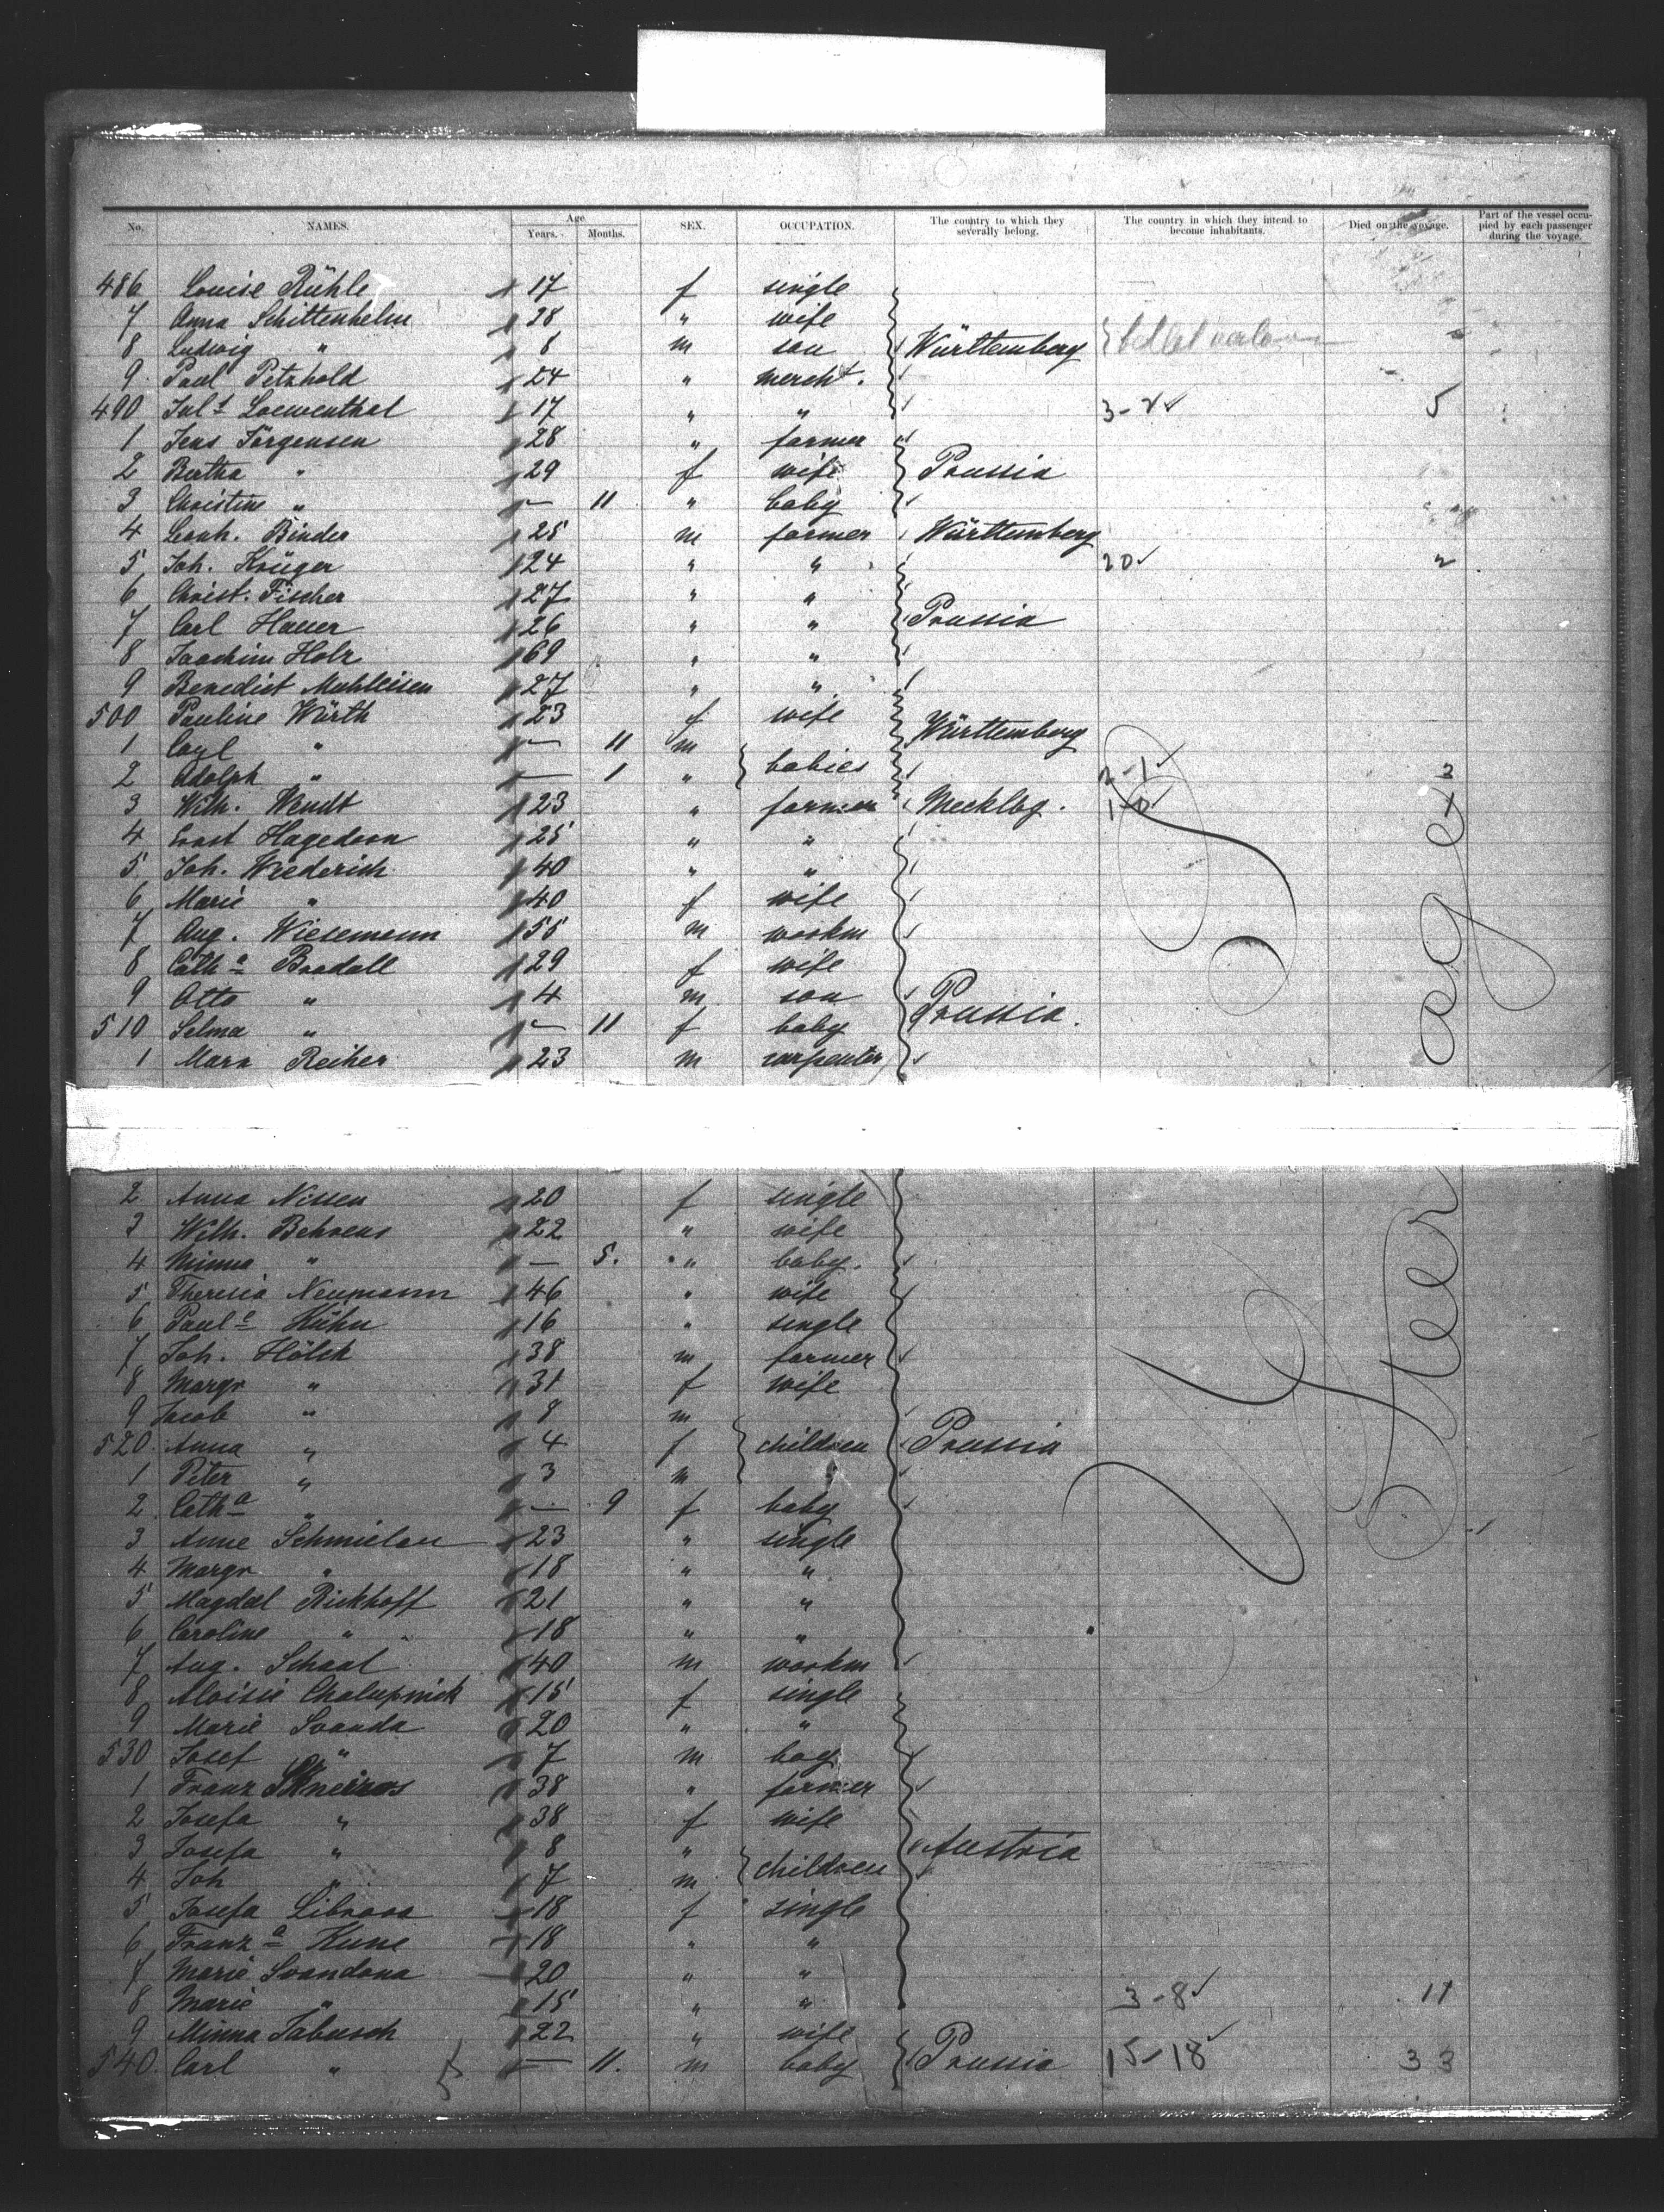 No. NAMES. Age Years. Months. SEX. OCCUPATION. The country to which they severally belong. The country in which they intend to become inhabitants. Died on the voyage. Part of the vessel occupied by each passenger during the voyage.
486 Louise Rühle 17 f single
7 Anna Schittenhelm 28 " wife
8 Ludwig " 8 m son Württemberg
9 Paul Petzhold 24 " mercht.
490 Juls Loewenthal 17 " " 5
1 Jens Jörgensen 28 " farmer
2 Bertha " 29 f wife Prussia
3 Christine " — 11 " baby
4 Leonh. Binder 25 m farmer Württemberg
5 Joh. Krüger 24 " " 20
6 Christ. Fischer 27 " "
7 Carl Hauer 26 " " Prussia
8 Joachim Holz 69 " "
9 Benedict Muhleisen 27 " "
500 Pauline Würth 23 f wife Württemberg
1 Carl " — 11 m
2 Adolph " — 1 " babies 2-1 3
3 Wilh. Wendt 23 " farmer Mecklbg.
4 Ernst Hagedorn 25 " "
5 Joh. Wiederich 40 " "
6 Marie " 40 f wife
7 Aug. Wiesemann 55 m workm
8 Catha Bradall 29 f wife
9 Otto " 4 m son Prussia.
510 Selma " — 11 f baby
1 Marx Reiher 23 m carpenter
2 Anna Nissen 20 f single
3 Wilh. Behrens 22 " wife
4 Minna " — 5. " baby.
5 Theresia Neumann 46 " wife
6 Paule Kühn 16 " single
7 Joh. Hölck 38 m farmer
8 Margr " 31 f wife
9 Jacob " 8 m
520 Anna " 4 f children Prussia
1 Peter " 3 m
2 Catha " — 9 f baby
3 Anne Schmielau 23 " single
4 Margr " 18 " "
5 Magdal Rickhoff 21 " "
6 Caroline " 18 " "
7 Aug. Schaal 40 m workm
8 Aloisie Chalupnick 15 f single
9 Marie Svanda 20 " "
530 Josef " 7 m boy
1 Franz 38 " farmer
2 Josefa " 38 f wife
3 Josefa " 8 " Austria
4 Joh " 7 m children
5 Josefa Libora 18 f single
6 Franza Kune 18 " "
7 Marie Svandona 20 " "
8 Marie " 15 " " 3-8 11
9 Minna Jabusch 22 " wife
540. Carl " — 11. m baby Prussia 15-18 33